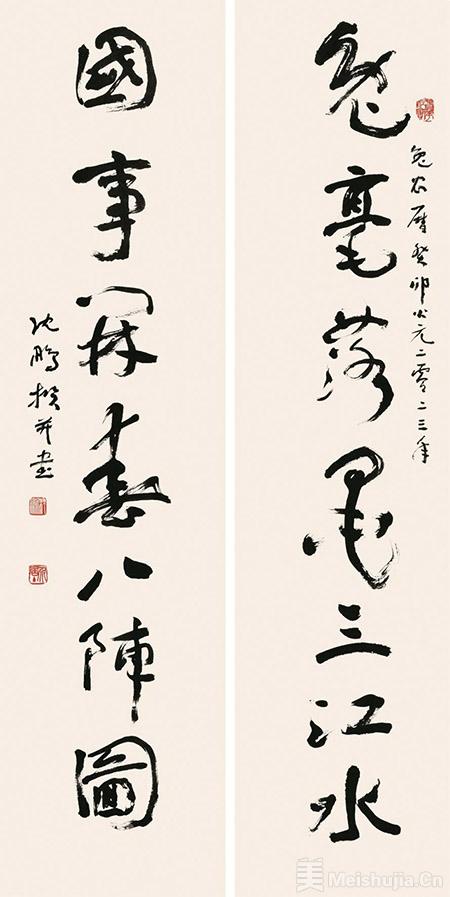 兔毫落墨三江水
兔农曆癸卯公元二零二三年
國事開春八陣圖
沈鵬撰并书
美 Meishujia.Cn